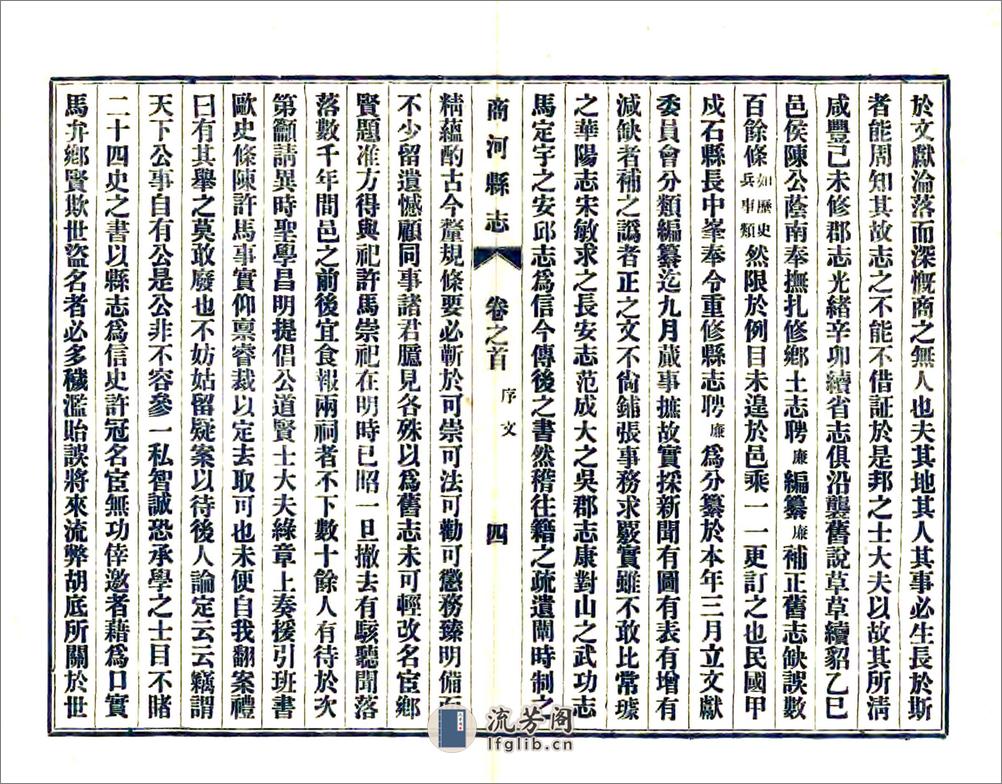 於文獻淪落而深慨商之無人也夫其地其人其事必生長於斯
者能周知其故志之不能不借証於是邦之士大夫以故其所淸
咸豐己未修郡志光緒辛卯續省志俱沿襲舊說草草續貂乙巳
邑侯陳公蔭南奉撫扎修鄉土志聘廉編纂廉補正舊志缺誤數
百餘條如歷史兵事類然限於例目未遑於邑乘一一更訂之也民國甲
戍石縣長中峯奉令重修縣志聘廉爲分纂於本年三月立文獻
委員會分類編纂迄九月蕆事摭故實採新聞有圖有表有增有
減缺者補之譌者正之文不尙鋪張事務求覈實雖不敢比常璩
之華陽志宋敏求之長安志范成大之吳郡志康對山之武功志
馬定宇之安邱志爲信今傳後之書然稽往籍之疏遺闡時制之
商河縣志 卷之首 序文 四
精蘊酌古今釐規條要必蘄於可崇可法可勸可懲務臻明備而
不少留遺憾顧同事諸君臆見各殊以爲舊志未可輕改名宦鄉
賢題准方得與祀許馬崇祀在明時已昭一旦撤去有駭聽聞落
落數千年間邑之前後宜食報兩祠者不下數十餘人有待於次
第籲請異時聖學昌明提倡公道賢士大夫綠章上奏援引班書
歐史條陳許馬事實仰禀睿裁以定去取可也未便自我翻案禮
曰有其舉之莫敢廢也不妨姑留疑案以待後人論定云云竊謂
天下公事自有公是公非不容參一私智誠恐承學之士目不睹
二十四史之書以縣志爲信史許冠名宦無功倖邀者藉爲口實
馬弁鄉賢欺世盜名者必多穢濫貽誤將來流弊胡底所關於世
流芳阁
lfglib.cn